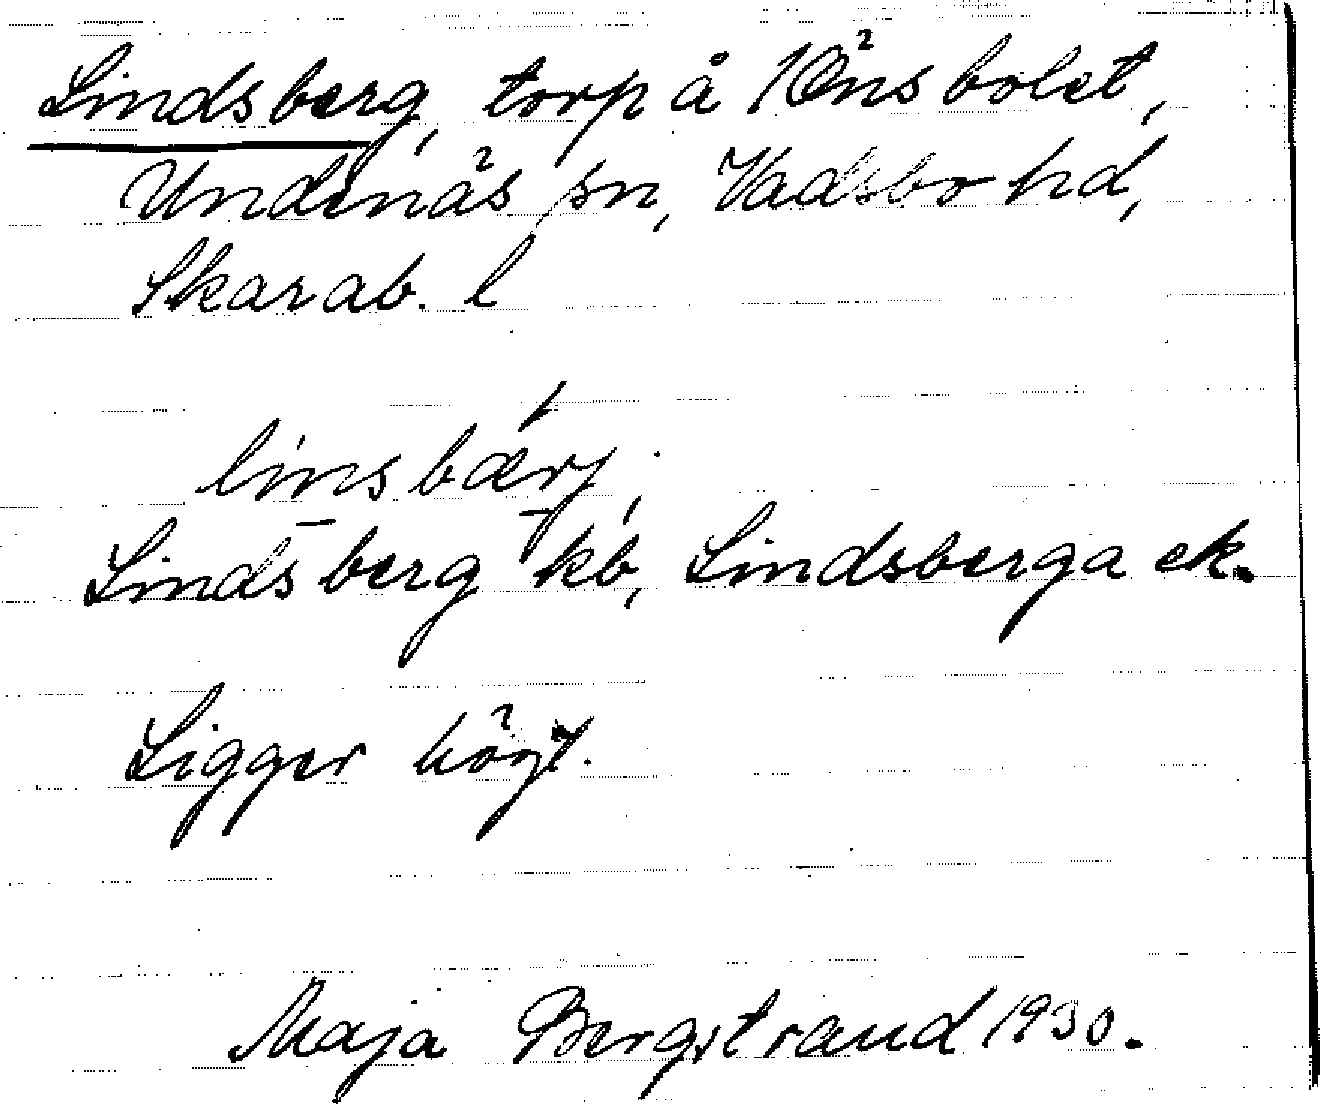 Lindsberg, torp på 1 Önsbolet,
Undenäs sn, Vadsbo hd,
Skarab. l
linsbærj.
Lindsberg kb, Lindsberga ek.
Ligger högt.
Maja Bergstrand 1930.